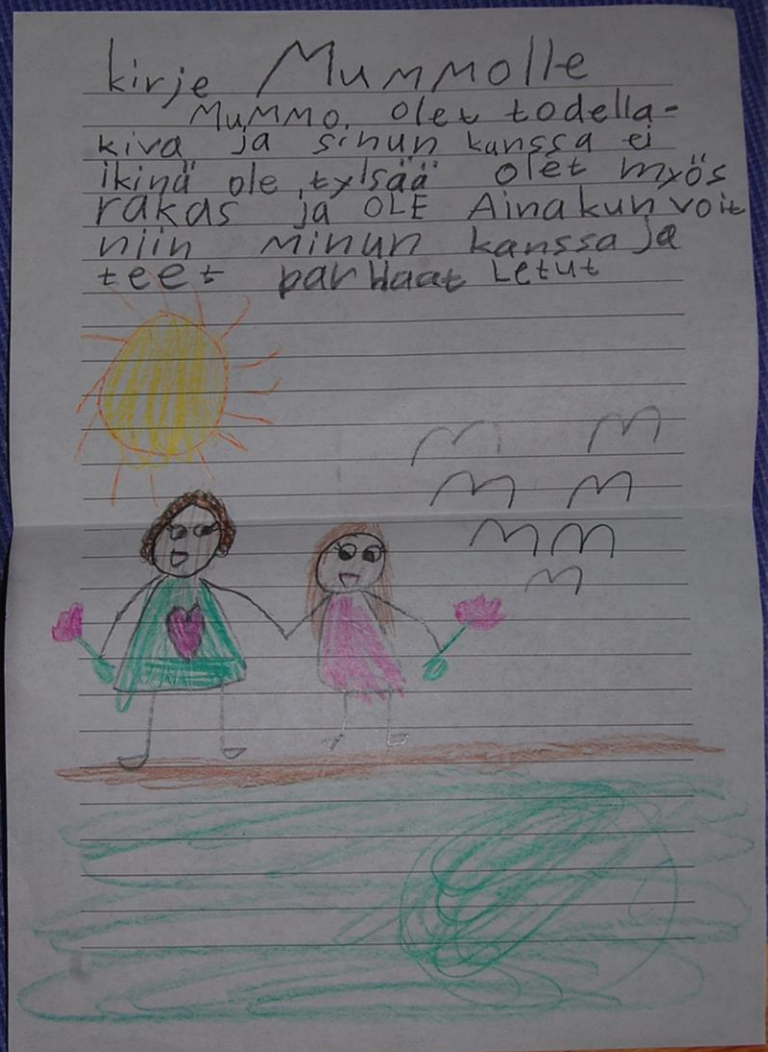 kirje Mummolle
Mummo. olet todella-
kiva ja sinun kanssa ei
ikinä ole tylsää olet myös
rakas ja OLE Aina kun voit
niin minun kanssa ja
teet parhaat Letut